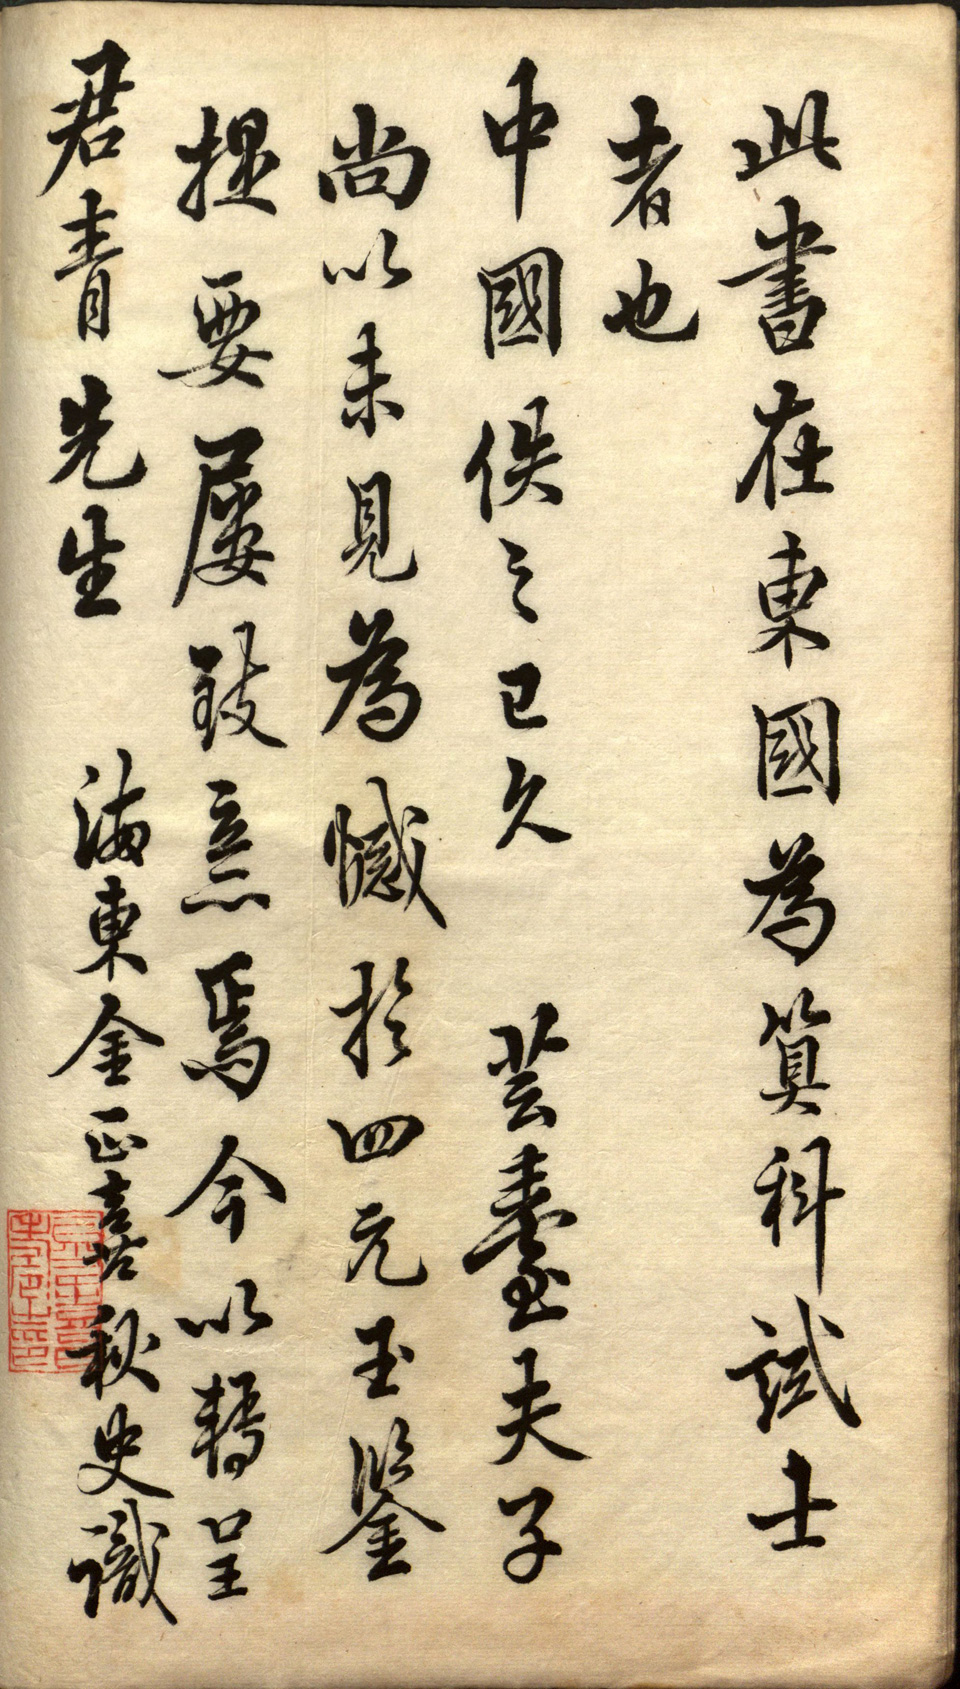 此書在東國為筭科試士
者也
中國佚之已久 芸臺夫子
尚以未見為憾於四元玉鑒
提要屢致意焉今以轉呈
君青先生 海東金正喜秋史識